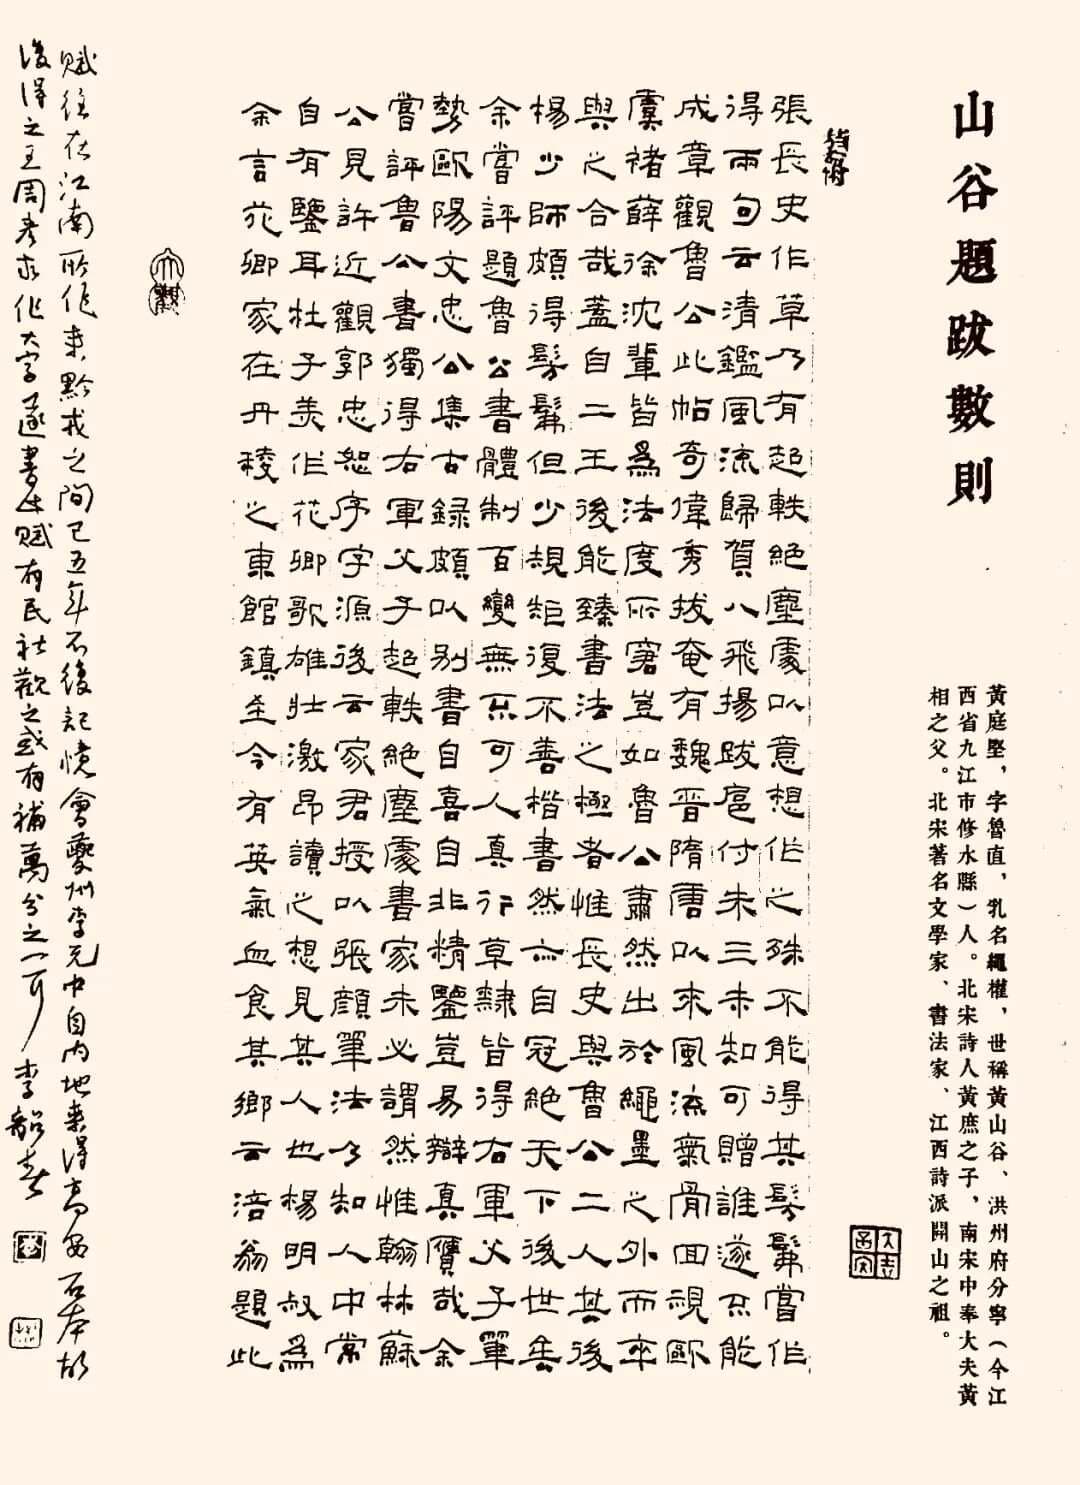 山谷題跋數則
黃庭堅，字魯直，乳名繩權，世稱黃山谷、洪州府分寧（今江
西省九江市修水縣）人。北宋詩人黃庶之子，南宋中奉大夫黃
相之父。北宋著名文學家、書法家、江西詩派開山之祖。
張長史作草乃有超軼絕塵處以意想作之殊不能得其髣髴嘗作
得兩句云清鑑風流歸賀八飛揚跋扈付朱三未知可贈誰遂不能
成章觀魯公此帖奇偉秀拔奄有魏晉隋唐以來風流氣骨回視歐
虞褚薛徐沈輩皆爲法度所窘豈如魯公蕭然出於繩墨之外而卒
與之合哉蓋自二王後能臻書法之極者惟長史與魯公二人其後
楊少師頗得髣髴但少規矩復不善楷書然亦自冠絕天下後世矣
余嘗評題魯公書體制百變無不可人真行草隸皆得右軍父子筆
勢歐陽文忠公集古錄頗以別書自喜自非精鑒豈易辯真贗哉余
嘗評魯公書獨得右軍父子超軼絕塵處書家未必謂然惟翰林蘇
公見許近觀郭忠恕字字源後云家君授以張顏筆法乃知人中常
自有鑒耳杜子美作花卿歌雄壯激昂讀之想見其人也楊明叔爲
余言花卿家在丹稜之東館鎮至今有英氣血食其鄉云涪翁題此
賦往在江南所作來黔戎之間已五年不復記憶會夔州李元中自內地來得高安石本故
後得之王周彥求作大字遂書此賦有民社觀之或有補萬分之一耳 李韶春